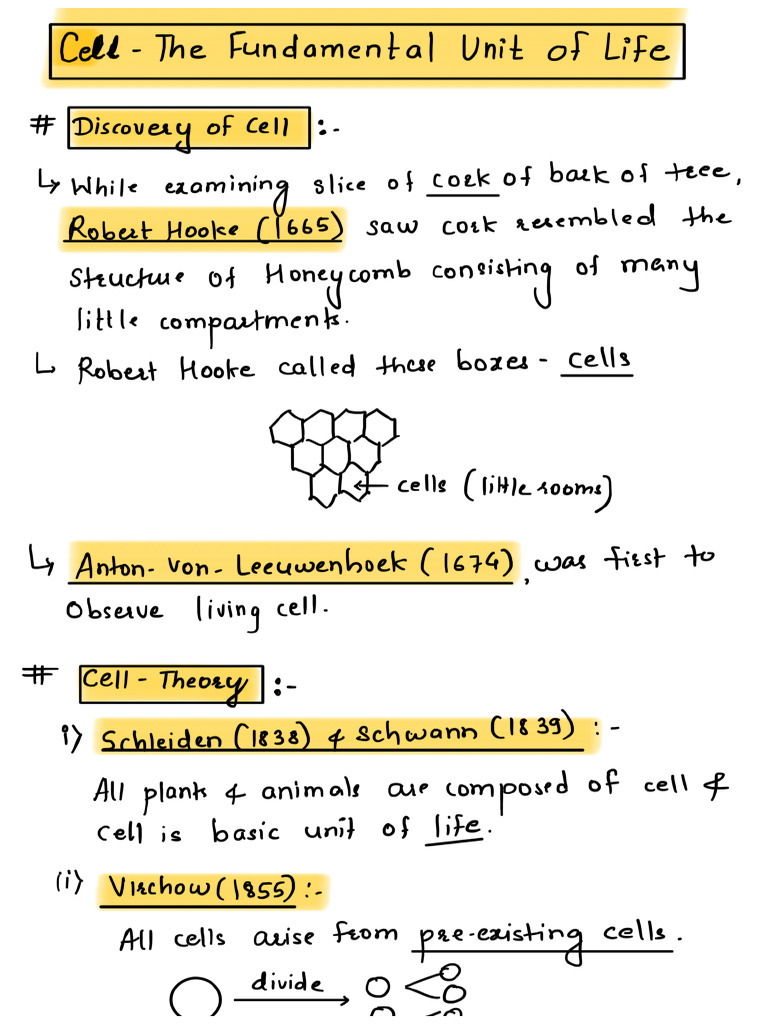 Cell - The Fundamental Unit of Life
# Discovery of Cell :-
↳ While examining slice of cork of bark of tree,
Robert Hooke (1665) saw cork resembled the
structure of Honeycomb consisting of many
little compartments.
↳ Robert Hooke called these boxes - cells
← cells (little rooms)
↳ Anton-von-Leeuwenhoek (1674), was first to
observe living cell.
# Cell - Theory :-
i) Schleiden (1838) & Schwann (1839) :-
All plants & animals are composed of cell &
cell is basic unit of life.
(i) Virchow (1855) :-
All cells arise from pre-existing cells.
divide